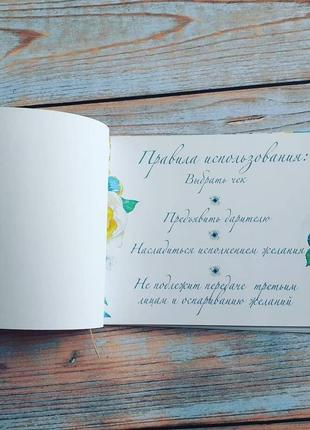 Правила использования:
Выбрать чек
Предъявить дарителю
Насладиться исполнением желания
Не подлежит передаче третьим
лицам и оспариванию желаний